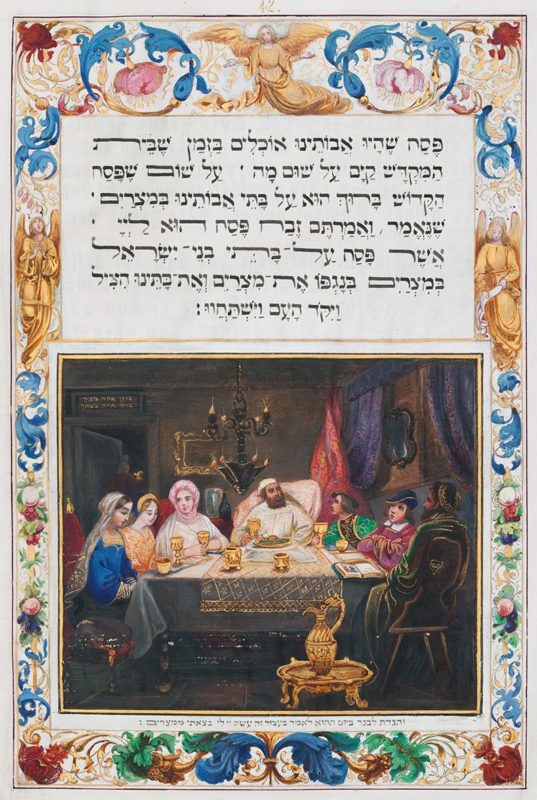 12
פֶּסַח שֶׁהָיוּ אֲבוֹתֵינוּ אוֹכְלִים בִּזְמַן שֶׁבֵּית
הַמִּקְדָּשׁ קַיָּם עַל שׁוּם מָה ׳ עַל שׁוּם שֶׁפָּסַח
הַקָּדוֹשׁ בָּרוּךְ הוּא עַל בָּתֵּי אֲבוֹתֵינוּ בְּמִצְרַיִם ׳
שֶׁנֶּאֱמַר , וַאֲמַרְתֶּם זֶבַח פֶּסַח הוּא לַיְיָ ׳
אֲשֶׁר פָּסַח עַל־בָּתֵּי בְנֵי־יִשְׂרָאֵל
בְּמִצְרַיִם בְּנָגְפּוֹ אֶת־מִצְרַיִם וְאֶת־בָּתֵּינוּ הִצִּיל
וַיִּקֹּד הָעָם וַיִּשְׁתַּחֲווּ :
ברוך אתה
ברוך אתה
והגדת לבנך ביום ההוא לאמר בעבור זה עשה יי לי בצאתי ממצרים :